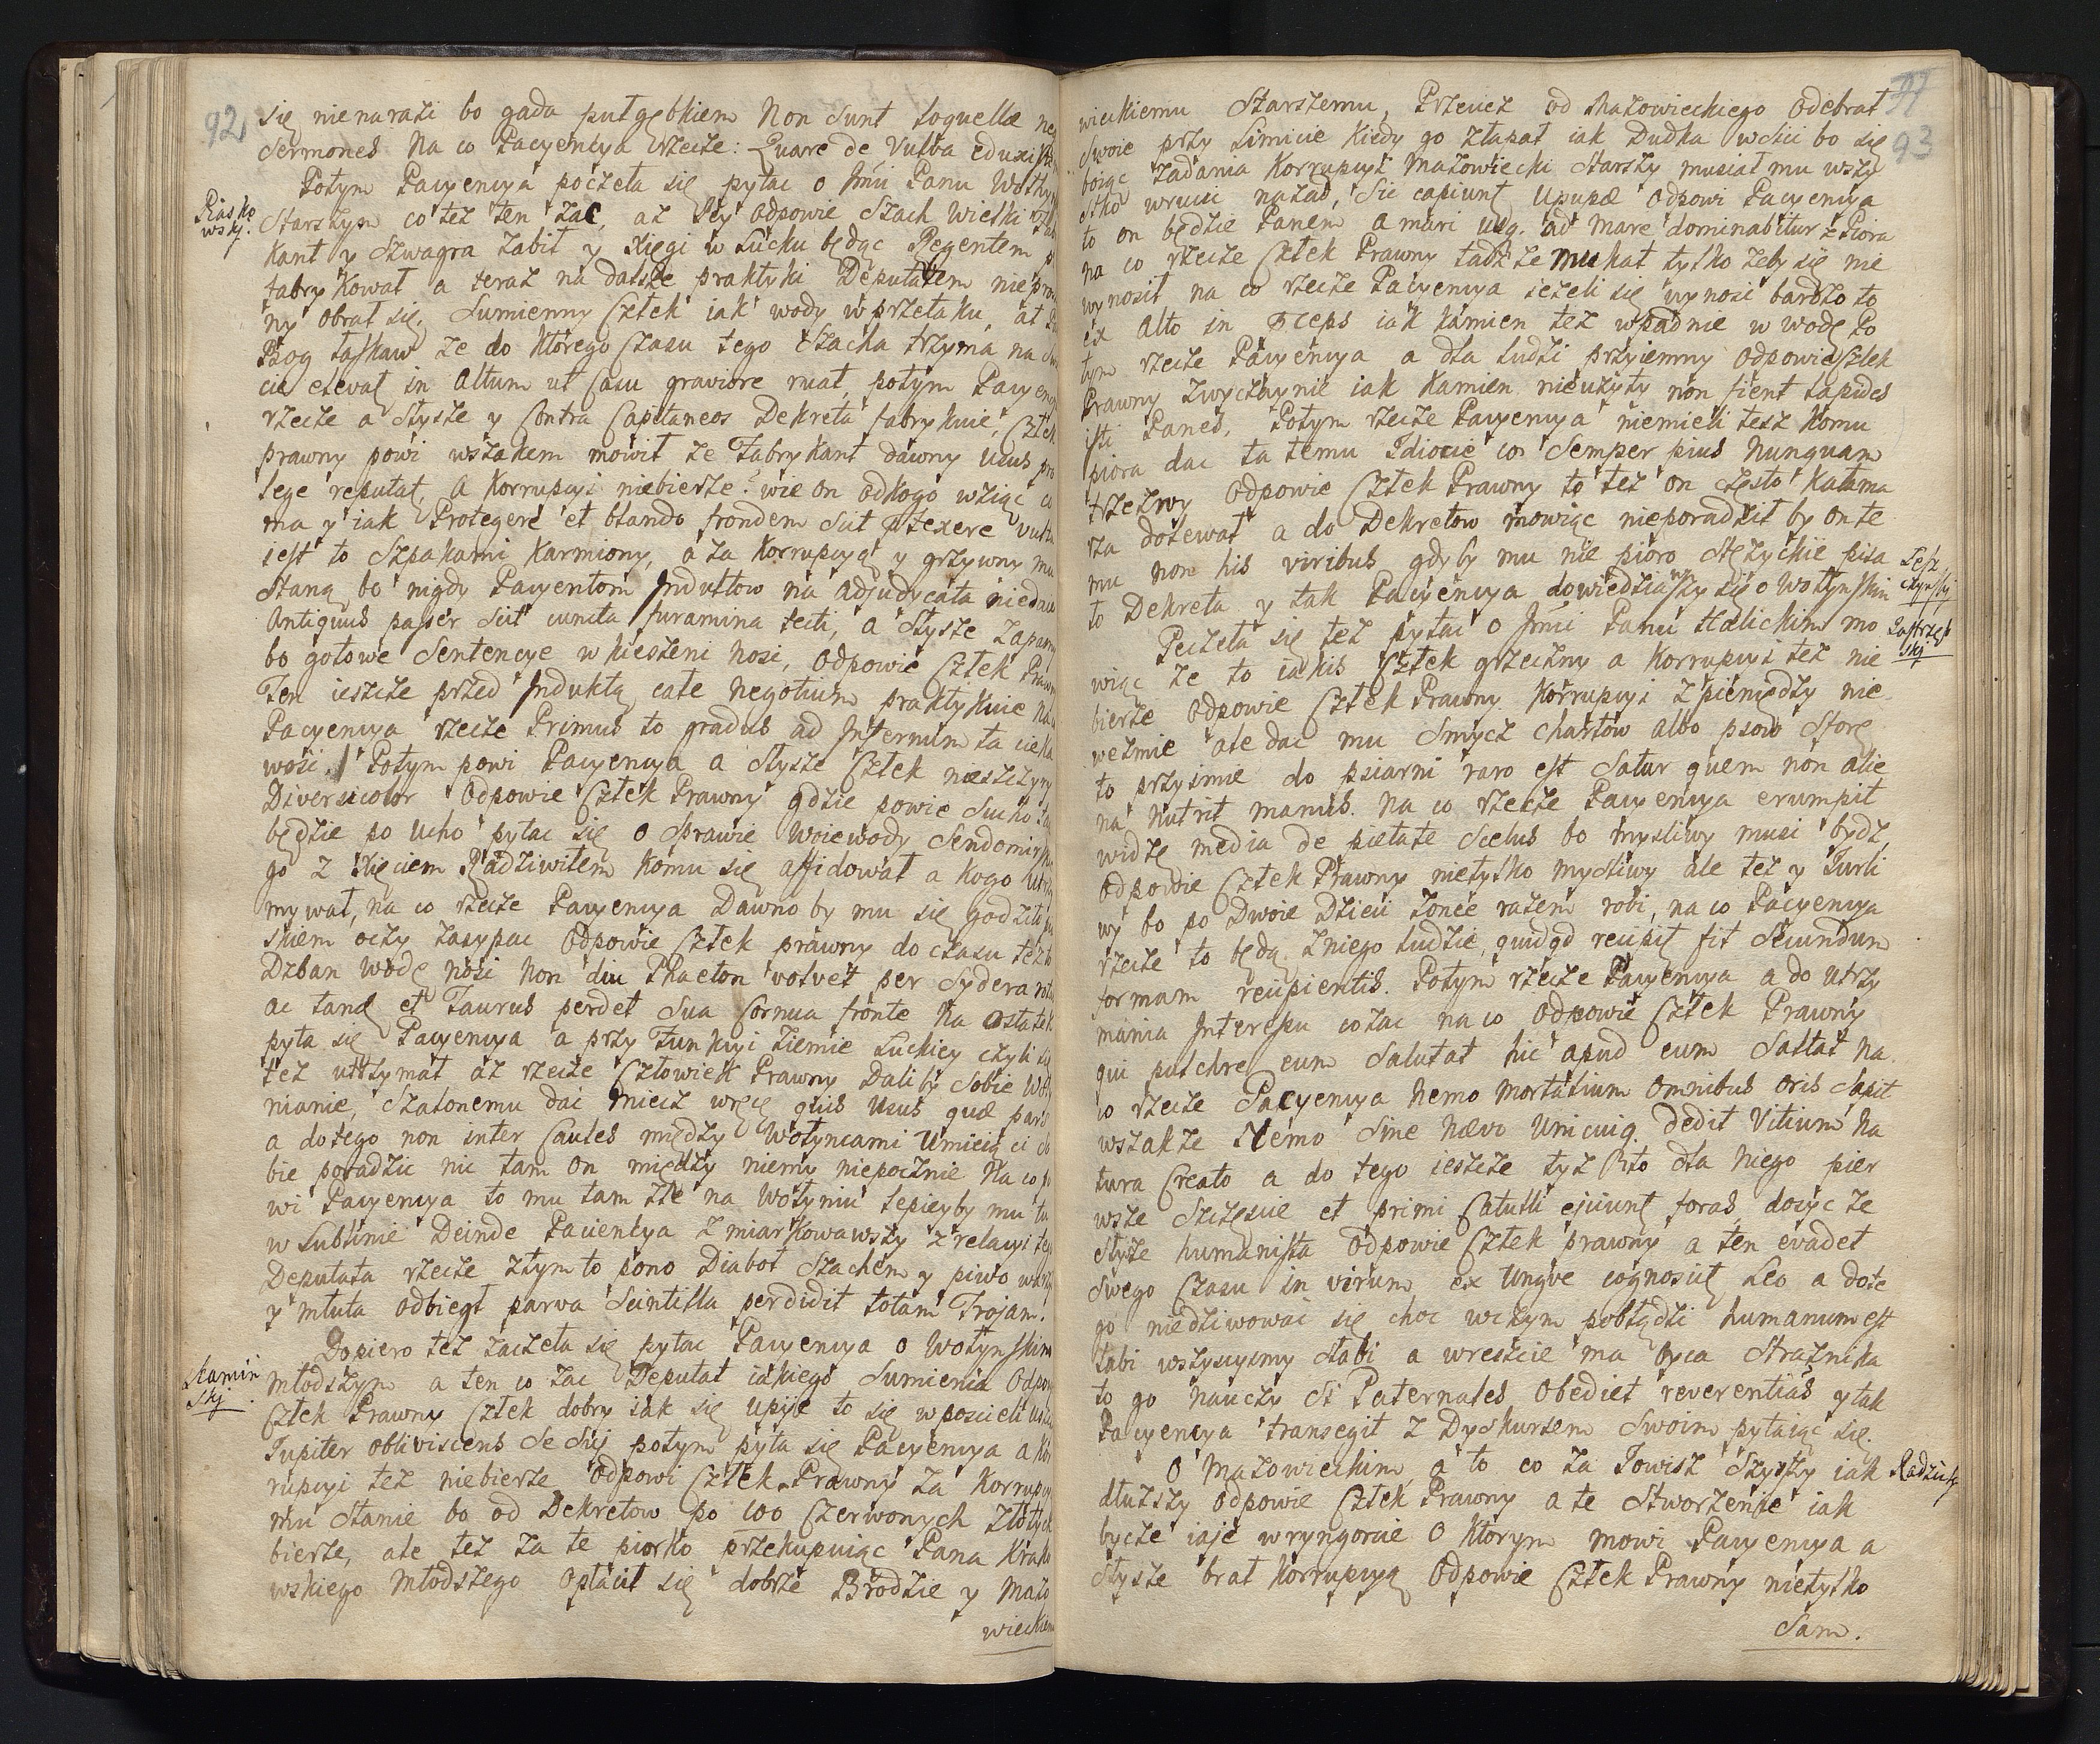 92
się nienarazi bo gada putgębkiem Non sunt Loquellæ neq
Sermones Na co Pacyencya rzecze: Quare de Vulva eduxisti
Potym Pacyencya poczeła się pytac o Jmći Panu Wołhyn
Rasko
wsky.
Starszym co tez ten zac, az Jey odpowie Szach Wielki
kant y Szwagra zabił y Xięgi w Łucku będąc Regentem
fabrykował a teraz na dalsze praktyki Deputatem nie
ny obrał się, Sumienny Człek iak wody w przetaku, at
Bog łaskaw ze do ktorego Czasu tego Szacha trzyma na
cie elevat in altum ut Casu graviore ruat, potym Pacyency
rzecze a Słysze y Contra Capitaneos Dekreta fabrykuie, Człek
prawny powi wszakem mowił ze Fabrykant dawny usus pro
lege reputat, a Korrupcyi niebierze? wie on odkogo wziąć co
ma y iak Protegere et blando frondem scit texere vultu
iest to Szpakami karmiony, a za Korrupcyą y grzywny mu
staną bo nigdy Pacyentom Induttow na adjudycata niedaie
Antiquus passer scit cuncta furamina tecti, a Słysze zaparny
bo gotowe Sentencye w kieszeni nosi, odpowie Człek Prawny
Ten ieszcze przed Induktą całe negotium praktykuie Na co
Pacyencya rzecze Primus to gradus ad Infernum ta cieka
wość. Potym powi Pacyencya a Słysze Człek nieszczyry
Diversicolor Odpowie Człek Prawny gdzie powie Sucho tam
będzie po ucho pytac się o Sprawie Woiewody Sendomirskie
go z Xięciem Radziwiłem komu się affidował a kogo utrzy
mywał, na co rzecze Pacyencya Dawno by mu się godziło pia
skiem oczy zasypac Odpowie Człek prawny do czasu tezto
Dzban wodę nosi Non diu Phaeton volvet per Sydera rotas
ac tand et Taurus perdet Sua Cornua fronte Na ostatek
pyta się Pacyencya a przy Funkcyi Ziemie Łuckiey czyli się
tez utrzymał, az rzecze Człowiek Prawny Daliby sobie Woły
nianie, Szalonemu dać miecz w ręce quis usus quæ pars
a dotego non inter Cautes między Wołyncami Umieią ci so
bie poradzic nic tam on między niemy niepocznie Na co po
wi Pacyencya to mu tam zle na Wołyniu lepieyby mu tu
w Lublinie Deinde Pacientya zmiarkowawszy z relacyi tego
Deputata rzecze ztym to pono Diaboł Szachem y piwo warzy
y młuta odbiegł parva Scintilla perdidit totam Trojam.
Dopiero tez zaczeła się pytac Pacyencya o Wołynskim
Kamin
sky.
młodszym a ten co zac Deputat iakiego Sumienia Odpow
Człek Prawny Człek dobry iak się upije to się w poscieli
Jupiter obliviscens se sui potym pyta się Pacyencya a Kor
rupcyi tez niebierze odpowi Człek Prawny za Korrupcyą
mu stanie bo od Dekretow po 100 Czerwonych Złotych
bierze, ale tez za te piorko przekupuiąc Pana Krako
wskiego młodszego opłacił się dobrze Brodzie y Mazo
wieckiem
93
wieckiemu Starszemu, Przecież od Mazowieckiego odebrał
Swoie przy Limicie kiedy go złapał iak Dudka wsici bo się
boiąc zadania Korrupcyi Mazowiecki Starszy musiał mu wszy
stko wrucić nazad, Sic capiunt Upupæ odpowi Pacyencya
to on będzie Panem a mari usq. ad mare dominabitur z Piora
na co rzecze Człek Prawny tadz ze mu kat tylko zeby się nie
wynosił, na co rzecze Pacyencya iezeli się wynosi bardzo to
ex alto in præceps iak kamien tez wpadnie w wodę Po
tym rzecze Pacyencya a dla ludzi przyiemny odpowie Człek
Prawny Zwyczaynie iak kamien nieuzyty non fient lapides
isti Panes, Potym rzecze Pacyencya niemieli tesz komu
piora dac ta temu Idiocie co Semper pius Nunquam
trzezwy odpowie Człek Prawny to tez on często Kałama
rza dolewał a do Dekretow mowiąc nieporadził by on te
mu non his viribus gdyby mu nie pioro Stęzyckie pisa
Lesz
czynsky
to Dekreta y tak Pacyencya dowiedziawszy się o Wołynskim
Peczeła się tez pytac o Jmći Panu Halickim mo
Jastrzęb
sky
wiąc ze to iakis Człek grzeczny a Korrupcyi tez nie
bierze odpowie Człek Prawny Korrupcyi z pieniędzy nie
wezmie ale dac mu Smycz chartow albo psow Sforę
to przyimie do psiarni raro est Satur quem non alie
na nutrit manus. Na co rzecze Pacyencya erumpit
widzę media de pietate Scelus bo mysliwy musi bydz,
odpowie Człek Prawny nietylko mysliwy ale tez y Jurli
wy bo po Dwoie Dzieci Zonce razem robi, na co Pacyencya
rzecze to będą z niego ludzie, quidqd recipit fit Secundum
formam recipientis. Potym rzecze Pacyencya a do utrzy
mania Interessu cozac na co odpowie Człek Prawny
qui pulchre eum Salutat hic apud eum Saltat Na
co rzecze Pacyencya Nemo mortalium omnibus oris Sapit
wszakze Nemo Sine Nævo Unicuiq. dedit Vitium Na
tura Creato a do tego ieszcze tyz sto dla niego pier
wsze Szczęscie et primi Catulli ejiciunt foras, dosyc ze
słysze humanista Odpowie Człek prawny a ten evadet
Swego Czasu in virum, ex Ungve cognoscit Leo a dote
go niedziwować się choc w czym pobłądzi humanum est
labi wszyscysmy słabi a wreszcie ma Oyca Straznika
to go nauczy Si Paternales obediet reverentias y tak
Pacyencya transegit z Dyskursem Swoim pytaiąc się
O Mazowieckim, a to co za Jowisz Szyszy iak
Radzick
dłuzszy odpowie Człek Prawny a te Stworzenie iak
bycze iaje w ryngorcie o ktorym mowi Pacyencya a
słysze brał Korrupcyą Odpowie Człek Prawny nietylko
Sam.